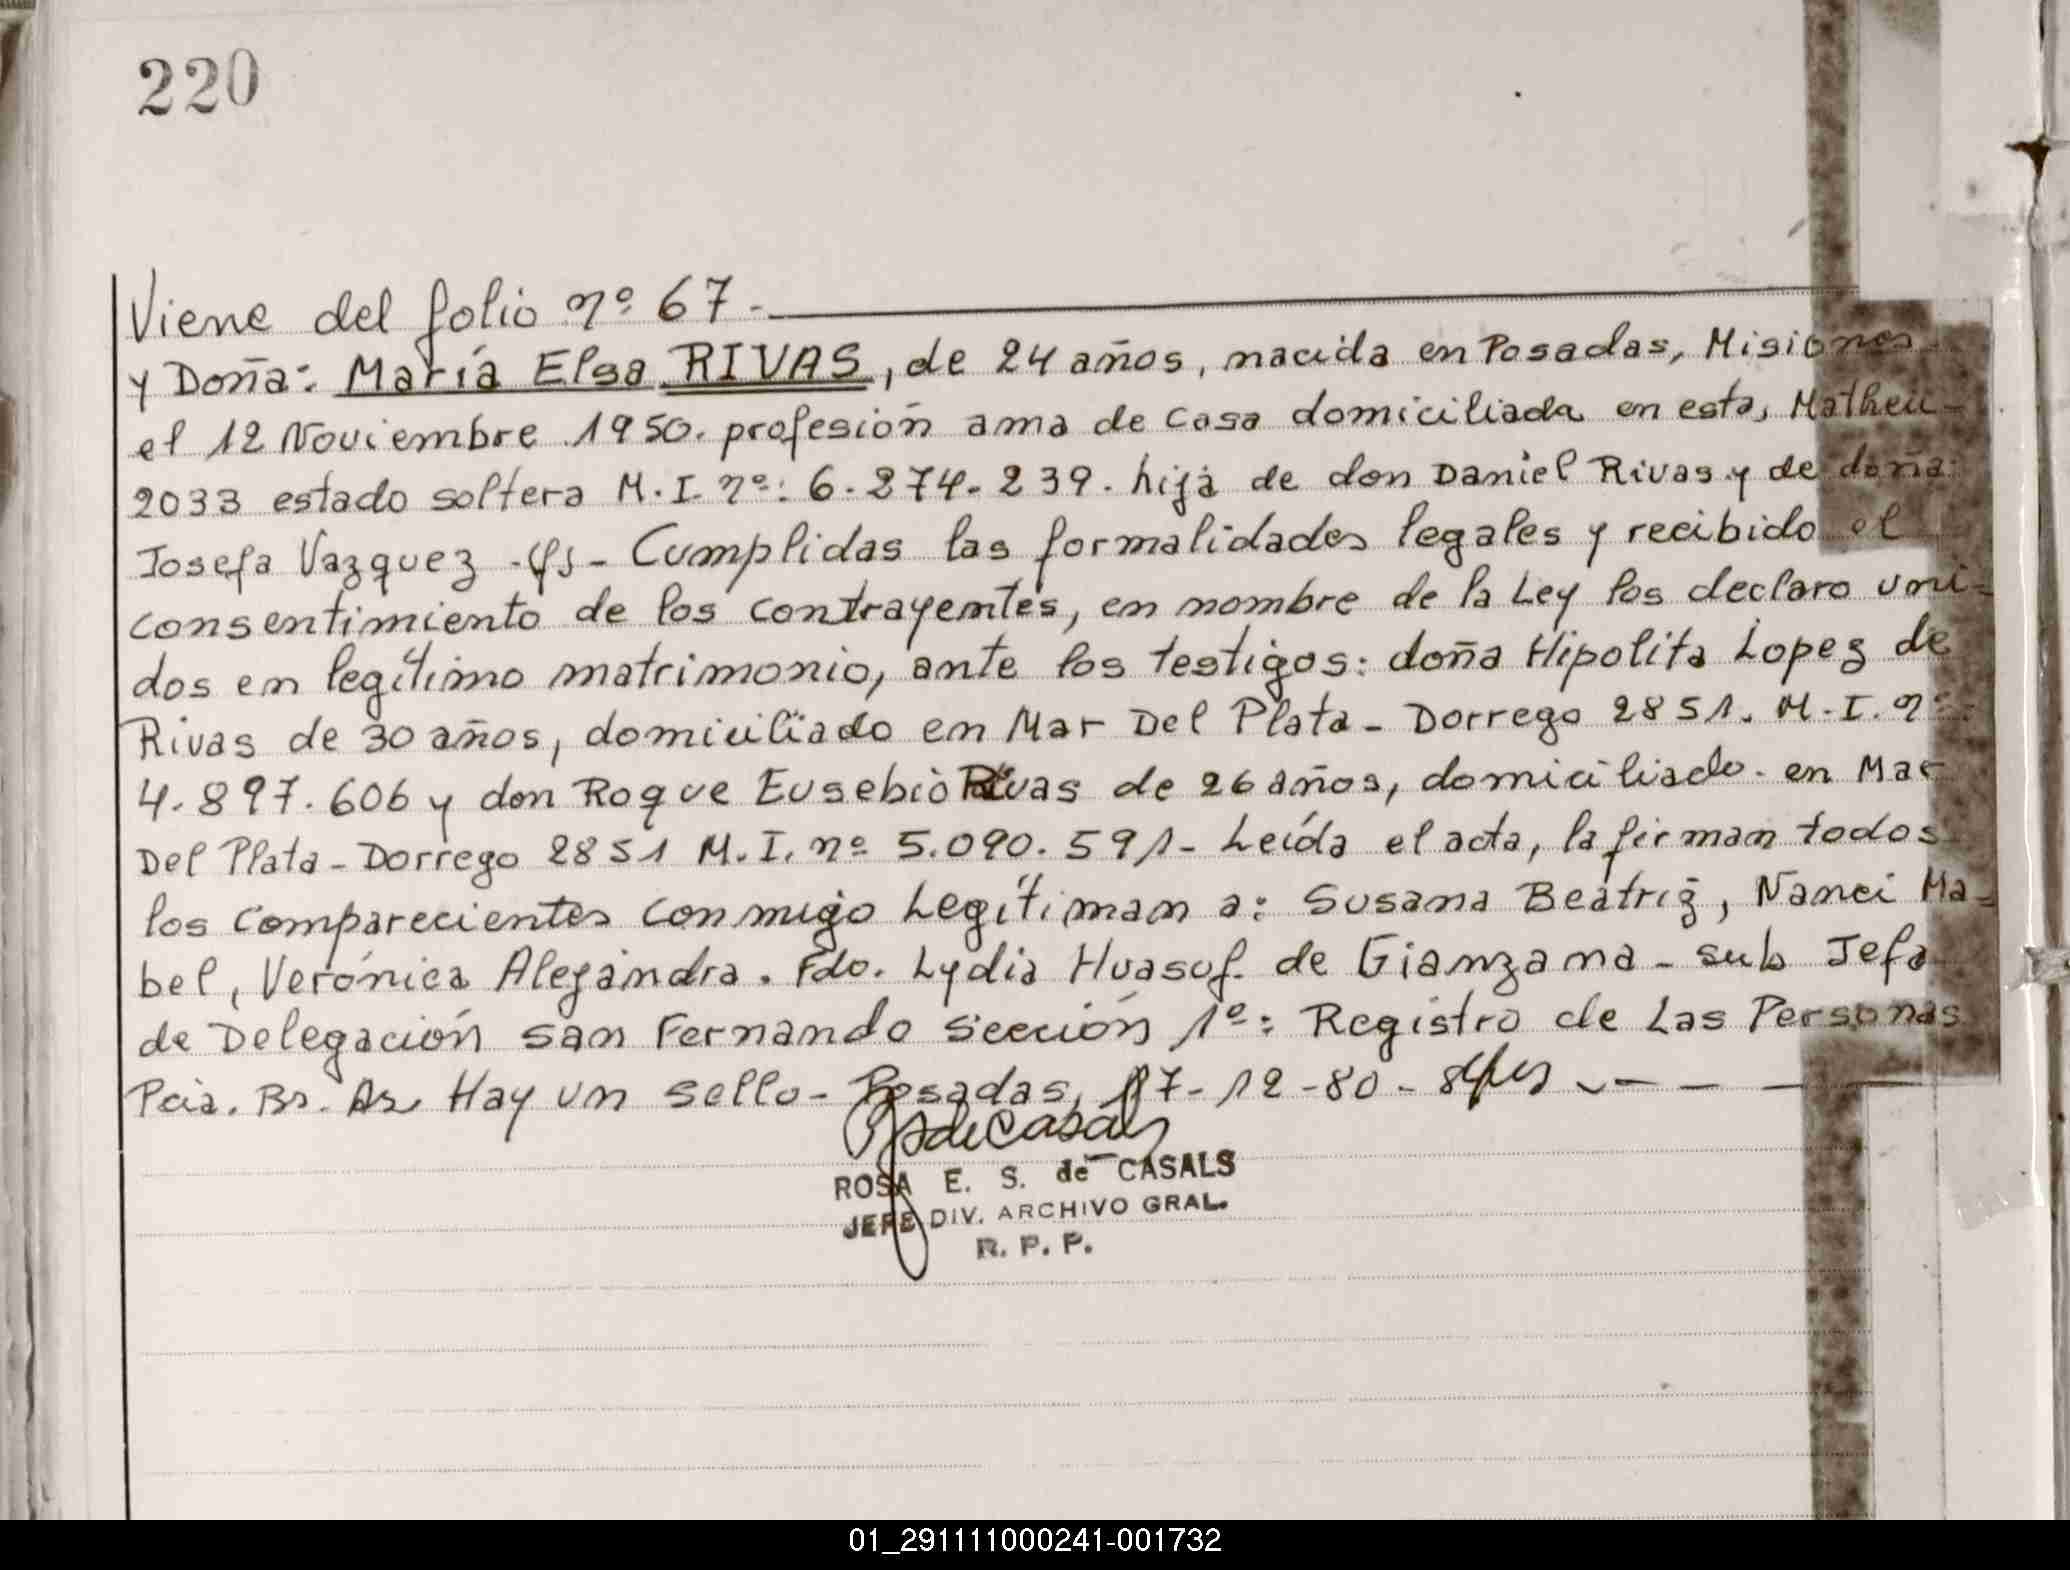 220
Viene del folio nº 67.-
y Doña: María Elsa RIVAS, de 24 años, nacida en Posadas, Misiones
el 12 Noviembre 1950. profesión ama de casa domiciliada en esta, Matheu-
2033 estado soltera M.I. nº: 6.274.239. hija de don Daniel Rivas y de doña
Josefa Vazquez - Cumplidas las formalidades legales y recibido el
consentimiento de los contrayentes, en nombre de la Ley los declaro uni-
dos en legítimo matrimonio, ante los testigos: doña Hipolita Lopez de
Rivas de 30 años, domiciliado en Mar Del Plata - Dorrego 2851. M.I. nº
4.897.606 y don Roque Eusebio Rivas de 26 años, domiciliado. en Mar
Del Plata - Dorrego 2851 M.I. nº 5.090.591- Leída el acta, la firman todos
los comparecientes conmigo Legítiman a: Susana Beatriz, Nanci Ma-
bel, Verónica Alejandra. Fdo. Lydia Huasuf de Gianzana - sub Jefa
de Delegación San Fernando Sección 1º: Registro de Las Personas
Pcia. Bs. As. Hay un sello - Posadas, 17-12-80 -
ROSA E. S. de CASALS
JEFE DIV. ARCHIVO GRAL.
R. P. P.
01_291111000241-001732